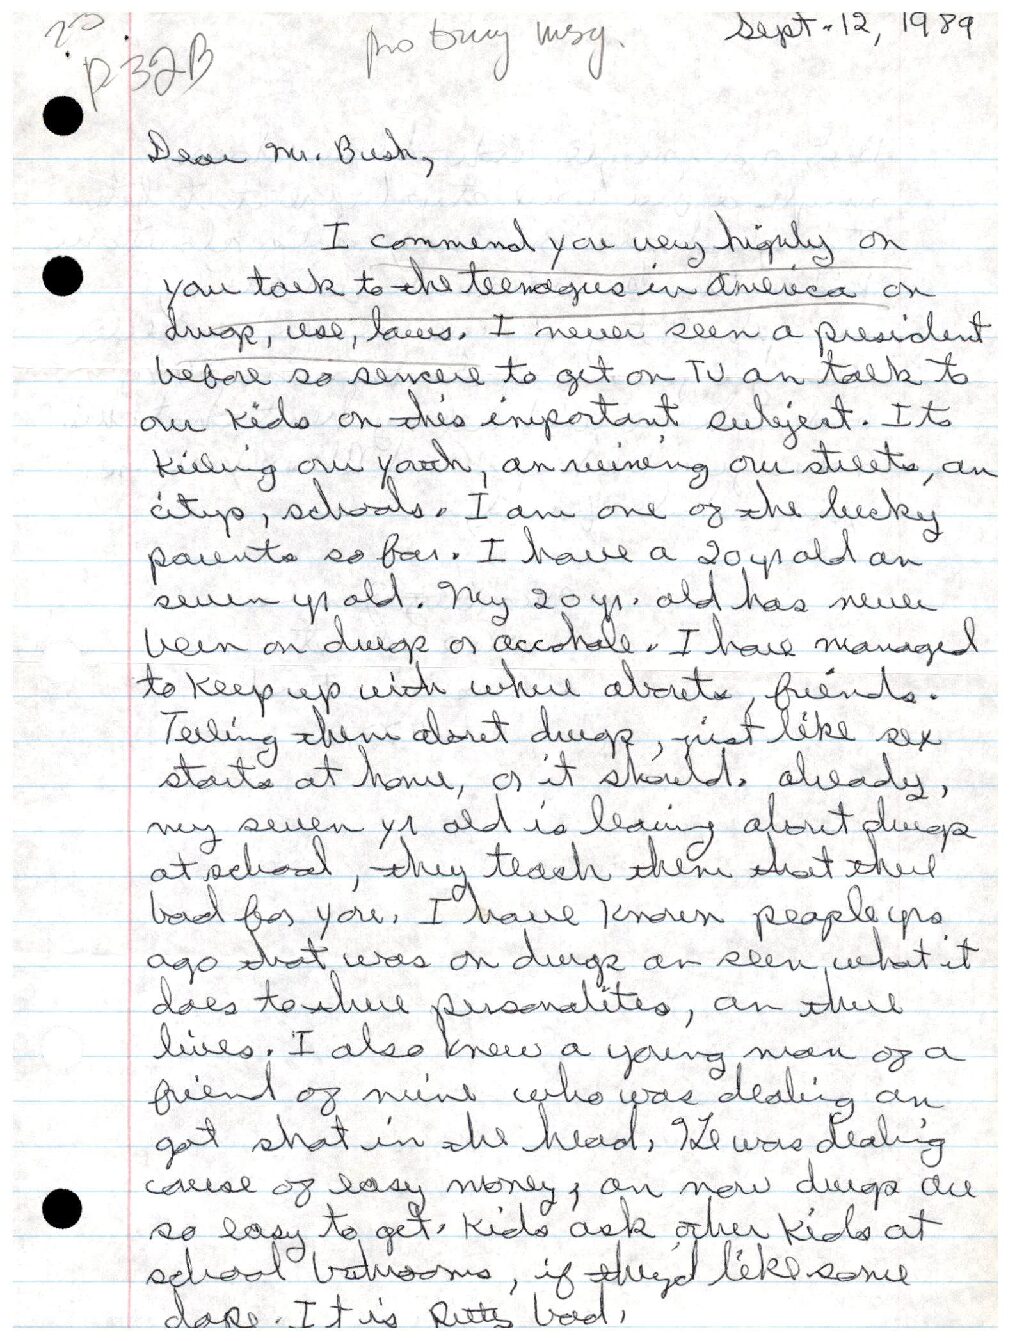 Sept. 12, 1989
P32B
Dear Mr. Bush,
I commend you very highly on
your talk to the teenagers in America on
drugs, use, laws. I never seen a president
before so sencere to get on TV an talk to
our kids on this important subject. Its
killing our youth, an ruining our streets, an
citys, schools. I am one of the lucky
parents so far. I have a 20 yr old an
seven yr old. My 20 yr. old has never
been on drugs or accohole. I have managed
to keep up with where abouts, friends.
Telling them about drugs, just like sex
starts at home, or it should. Already,
my seven yr old is learing about drugs
at school, they teach them that there
bad for you. I have known people yrs
ago that was on drugs an seen what it
does to there personalites, an there
lives. I also knew a young man of a
friend of mine who was dealing an
got shot in the head. He was dealing
cause of easy money, an now drugs are
so easy to get. Kids ask other kids at
school bathrooms, if they'd like some
dope. It is pretty bad.